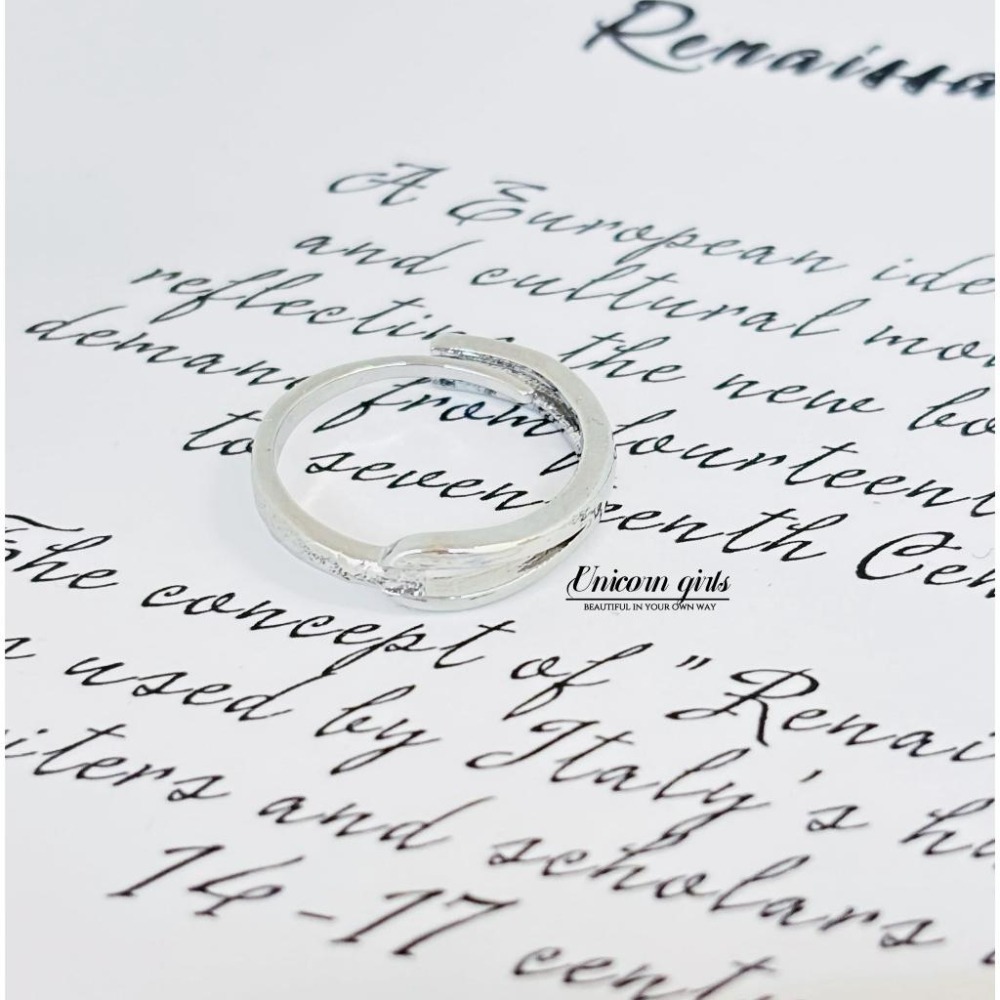 Renaissa
A European ide
and cultural mo
reflectin the new bo
deman from fourteen
to seventeenth Cen
The concept of "Renai
used by Italy's hu
iters and scholars
14-17 cent
Unicorn girls
BEAUTIFUL IN YOUR OWN WAY